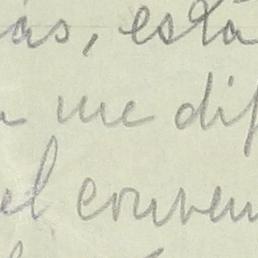 ás, está
me dif
el conven